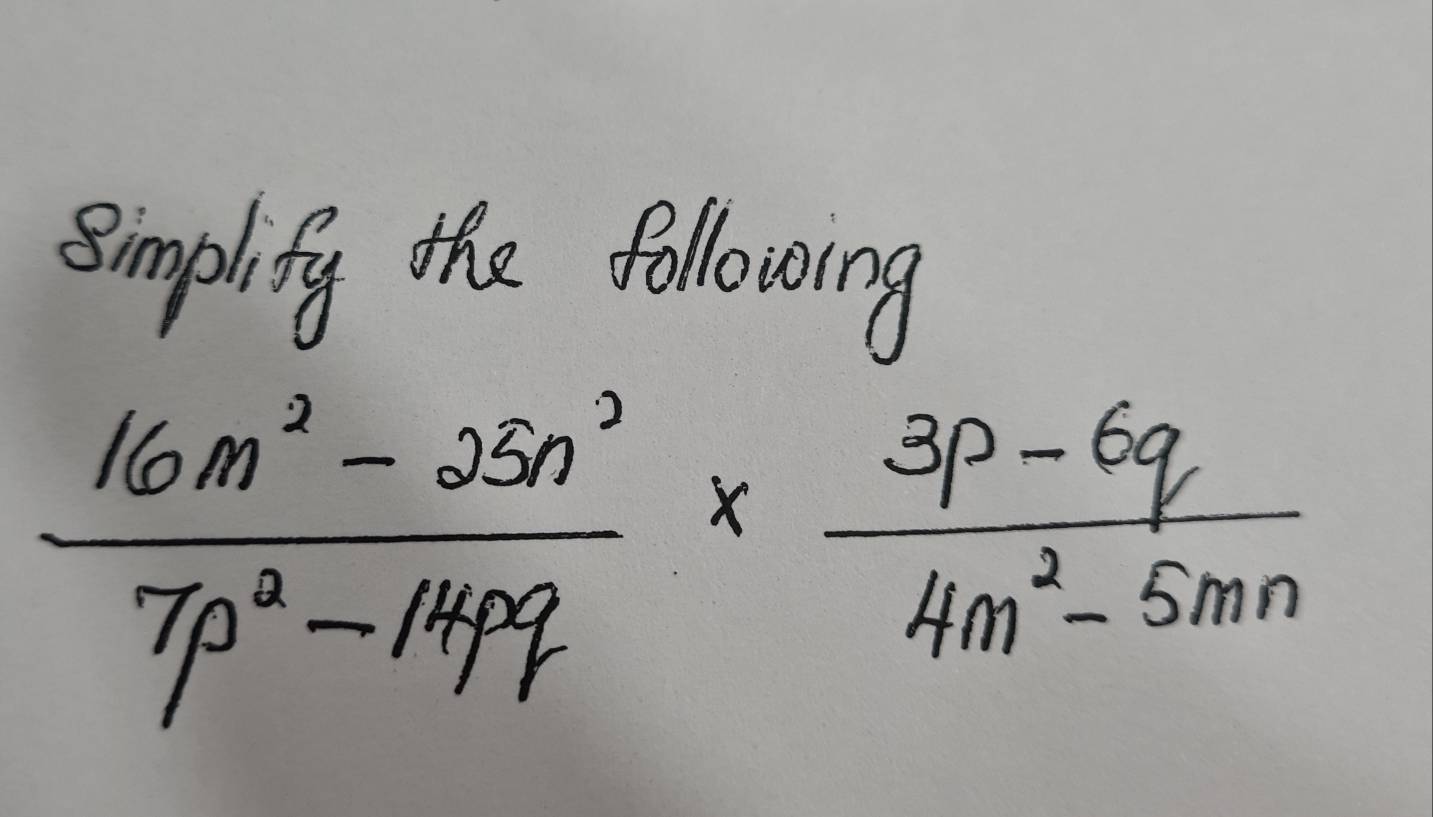 Simplify the following
16m² - 25n² x 3p - 6q
7p² - 14pq 4m² - 5mn